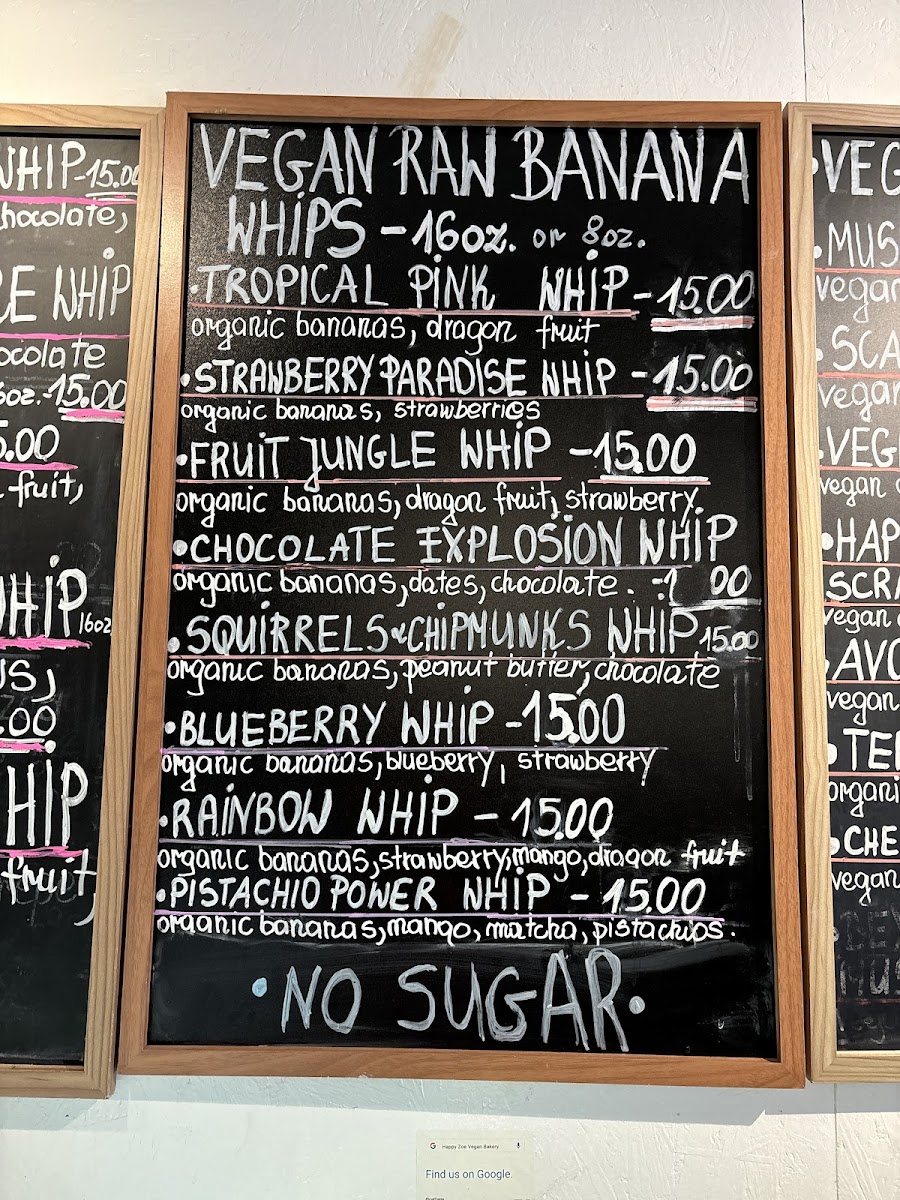 WHIP-15.00
chocolate,
WHIP
15.00
5.00
fruit,
WHIP 16oz
.00
HIP
fruit,
VEGAN RAW BANANA
WHIPS - 16oz. or 8oz.
·TROPICAL PINK WHIP - 15.00
organic bananas, dragon fruit
·STRAWBERRY PARADISE WHIP - 15.00
organic bananas, strawberries
·FRUIT JUNGLE WHIP - 15.00
organic bananas, dragon fruit, strawberry
·CHOCOLATE EXPLOSION WHIP
organic bananas, dates, chocolate. -1 00
·SQUIRRELS & CHIPMUNKS WHIP 15.00
organic bananas, peanut butter, chocolate
·BLUEBERRY WHIP - 15.00
organic bananas, blueberry, strawberry
·RAINBOW WHIP - 15.00
organic bananas, strawberry, mango, dragon fruit
·PISTACHIO POWER WHIP - 15.00
organic bananas, mango, matcha, pistachios.
·NO SUGAR·
·VEG
·MUS
vegan
·SCA
vegan
·VEG
vegan
·HAP
SCRA
vegan
·AVO
vegan
·TE
organi
·CHE
vegan
Happy Zoe Vegan Bakery
Find us on Google.